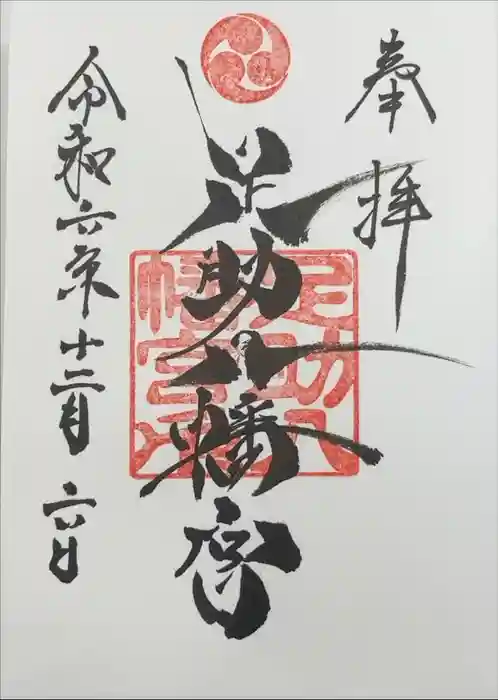 奉拝
足助八幡宮
足助八幡宮印
令和六年十二月六日